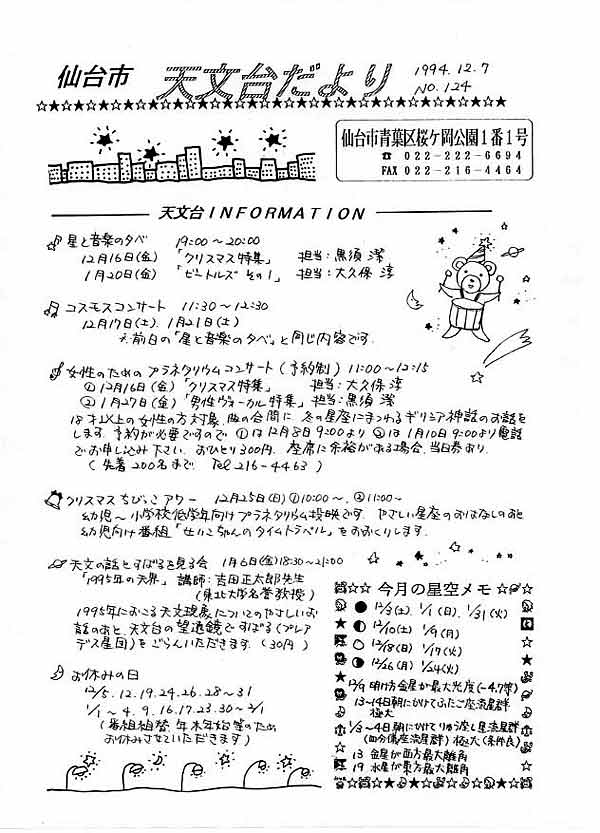 仙台市 天文台だより 1994.12.7
NO.124
仙台市青葉区桜ケ岡公園1番1号
☎ 022-222-6694
FAX 022-216-4464
天文台INFORMATION
星と音楽の夕べ 19:00～20:00
12月16日(金) 「クリスマス特集」 担当:黒須 潔
1月20日(金) 「ビートルズ その1」 担当:大久保 淳
コスモスコンサート 11:30～12:30
12月17日(土). 1月21日(土)
前日の「星と音楽の夕べ」と同じ内容です.
女性のための プラネタリウムコンサート(予約制) 11:00～12:15
①12月16日(金)「クリスマス特集」 担当:大久保 淳
②1月27日(金)「男性ヴォーカル特集」担当:黒須 潔
18才以上の女性の方対象. 曲の合間に、冬の星座にまつわるギリシア神話のお話を
します. 予約が必要ですので ①は12月8日9:00より ②は1月10日9:00より電話
でお申し込み下さい. おひとり300円. 座席に余裕がある場合、当日券あり.
(先着200名まで. Tel 216-4463)
クリスマスちびっこアワー 12月25日(日)①10:00～. ②11:00～
幼児～小学校低学年向けプラネタリウム投映です. やさしい星座のおはなしのあと
幼児向け番組「せいこちゃんのタイムトラベル」をおおくりします.
天文の話とすばるを見る会 1月6日(金)18:30～21:00
「1995年の天界」 講師:吉田正太郎先生
(東北大学名誉教授)
1995年におこる天文現象についてのやさしいお
話のあと、天文台の望遠鏡ですばる(プレア
デス星団)をごらんいただきます. (30円)
お休みの日
12/5. 12. 19. 24. 26. 28～31
1/1～4. 9. 16. 17. 23. 30～2/1
(番組組替、年末年始等のため
お休みさせていただきます)
今月の星空メモ
12/3(土). 1/1(日). 1/31(火)
12/10(土) 1/9(月)
12/18(日) 1/17(火)
12/26(月) 1/24(火)
12/9 明け方金星が最大光度(-4.7等)
13～14日朝にかけてふたご座流星群
極大
1/3～4日朝にかけてりゅう座流星群
(四分儀座流星群)極大(条件良)
13 金星が西方最大離角
19 水星が東方最大離角